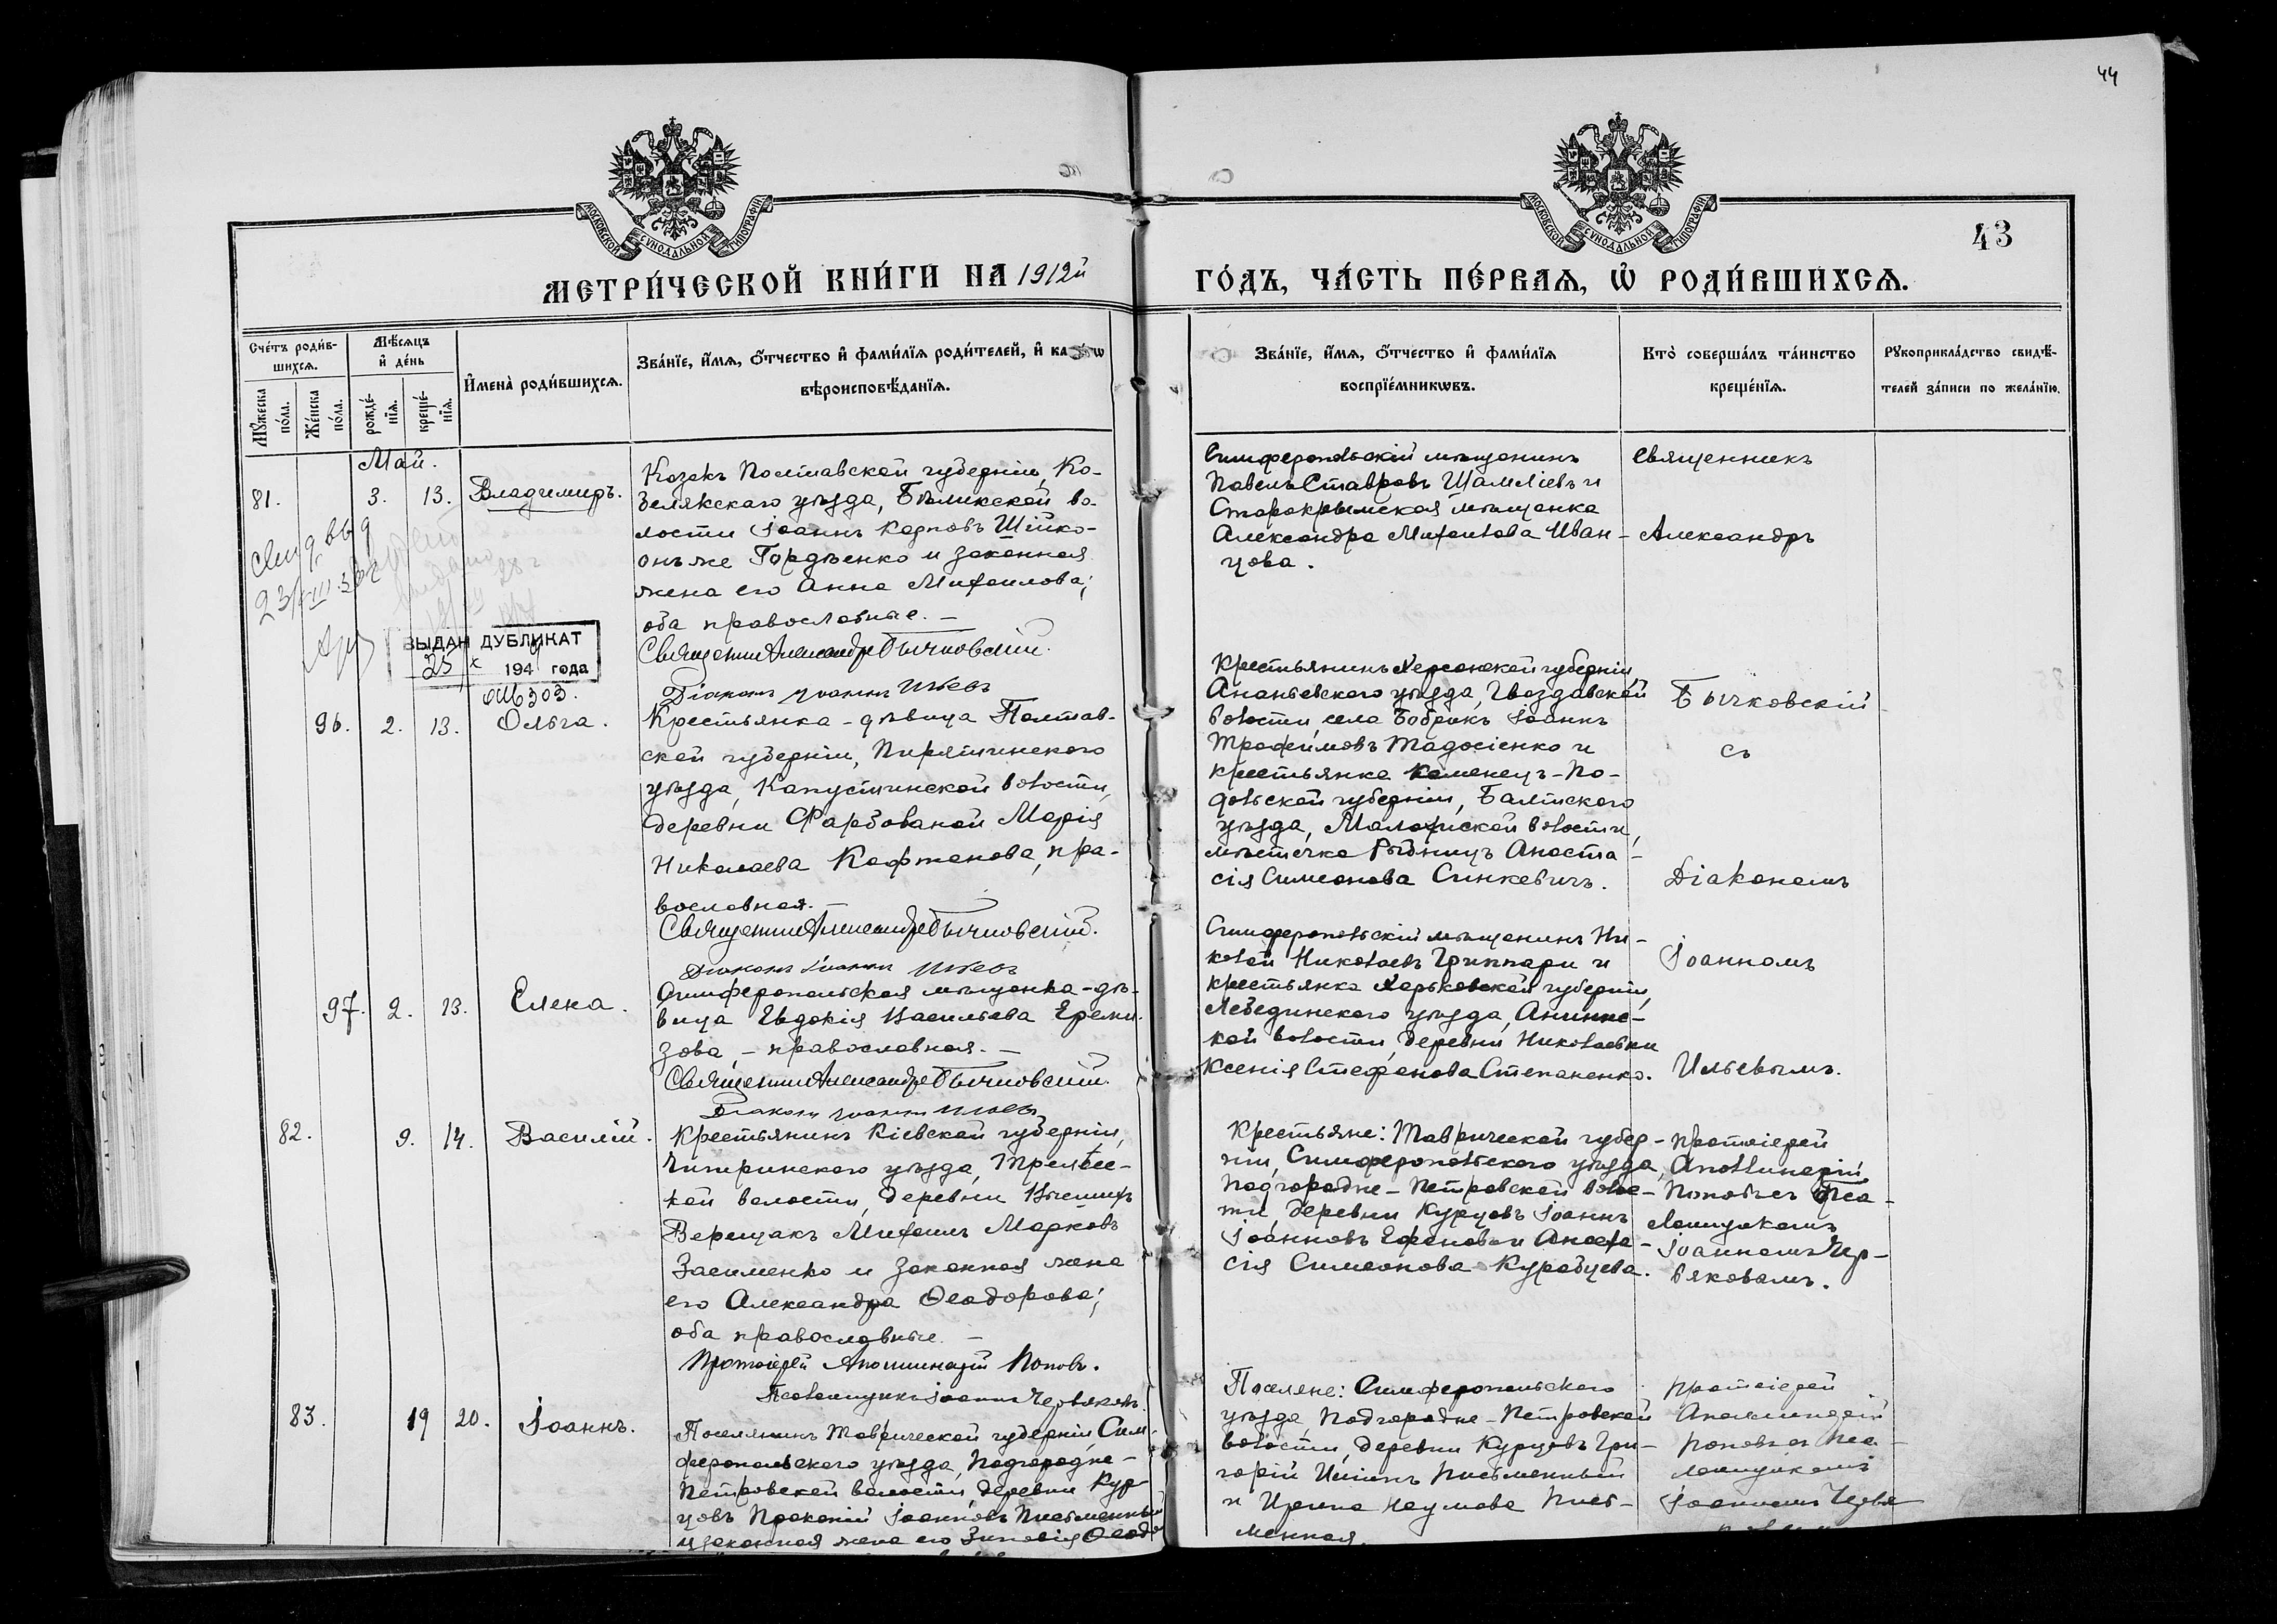 44
МОСКОВСКОЙ СУНОДАЛЬНОЙ ТИПОГРАФІИ
МОСКОВСКОЙ СУНОДАЛЬНОЙ ТИПОГРАФІИ
43
МЕТРИ́ЧЕСКОЙ КНИ́ГИ НА 1912й
ГО́ДЪ, ЧА́СТЬ ПЕ́РВАѦ, Ѡ҆ РОДИ́ВШИХСѦ.
Сче́тъ роди́в-
шихсѧ.
Мꙋ́жеска
по́ла.
Же́нска
по́ла.
Мѣ́сѧцъ
и҆ де́нь
рожде́-
нїѧ.
креще́-
нїѧ.
И҆мена̀ роди́вшихсѧ.
Зва́нїе, и҆́мѧ, ѻ҆́тчество и҆ фами́лїѧ роди́телей, и҆
вѣроисповѣ́данїѧ.
Зва́нїе, и҆́мѧ, ѻ҆́тчество и҆ фами́лїѧ
воспрїе́мникѡвъ.
Кто̀ соверша́лъ та́инство
креще́нїѧ.
Рꙋкоприкла́дство свидѣ́-
телей за́писи по жела́нїю.
Май.
81.
3.
13.
Владимиръ.
Козакъ Полтавской губерніи, Ко-
белякскаго уѣзда, Бѣликской во-
лости Іоаннъ Карповъ Шійко-
онъ же Гордѣенко и законная
жена его Анна Михаилова;
оба православные. —
Священникъ Александръ Бычковскій.
Діаконъ Іоаннъ Ильевъ
Симферопольскій мѣщанинъ
Павелъ Ставровъ Шамліевъ и
Старокрымская мѣщанка
Александра Михаилова Иван-
цова.
Священникъ
Александръ
ВЫДАН ДУБЛИКАТ
25 X 194 года
303.
96.
2.
13.
Ольга.
Крестьянка-дѣвица Полтав-
ской губерніи, Пирятинскаго
уѣзда, Капустинской волости,
деревни Фарбованой Марія
Николаева Кафтанова, пра-
вославная. —
Священникъ Александръ Бычковскій.
Діаконъ Іоаннъ Ильевъ
Крестьянинъ Херсонской губерніи,
Ананьевскаго уѣзда, Гвоздавской
волости, села Бобрикъ Іоаннъ
Трофимовъ Тадосіенко и
крестьянка Каменецъ-По-
дольской губерніи, Балтскаго
уѣзда, волости,
мѣстечка Рыбницъ Анаста-
сія Симеонова Синкевичъ.
Бычковскій
съ
Діакономъ
97.
2.
13.
Елена.
Симферопольская мѣщанка-дѣ-
вица Евдокія Васильева Ереми-
зова, — православная. —
Священникъ Александръ Бычковскій.
Діаконъ Іоаннъ Ильевъ
Симферопольскій мѣщанинъ Ни-
колай Николаевъ Триппари и
крестьянка Харьковской губерніи,
Лебединскаго уѣзда, Аннинс-
кой волости, деревни Николаевки
Ксенія Стефанова Степаненко.
Іоанномъ
Ильевымъ.
82.
9.
14.
Василій.
Крестьянинъ Кіевской губерніи,
Чигиринскаго уѣзда, Трилѣс-
кой волости, деревни Вышихъ
Верещакъ Михаилъ Марковъ
Засименко и законная жена
его Александра Ѳеодорова;
оба православные. —
Протоіерей Аполлинарій Поповъ.
Псаломщикъ Іоаннъ Червяковъ.
Крестьяне: Таврической губер-
ніи, Симферопольскаго уѣзда,
Подгородне-Петровской волос-
ти, деревни Курцовъ Іоаннъ
Іоанновъ и Анаста-
сія Симеонова Курабцева.
Протоіерей
Аполлинарій
Поповъ съ Пса-
ломщикомъ
Іоанномъ Чер-
вяковымъ.
83.
19
20.
Іоаннъ.
Поселянинъ Таврической губерніи, Сим-
феропольскаго уѣзда, Подгородне-
Петровской волости, деревни Кур-
цовъ Прокопій Іоанновъ Письменный
и законная жена его Зиновія Ѳеодо
Поселяне: Симферопольскаго
уѣзда Подгородне-Петровской
волости, деревни Курцовъ Гри-
горій Письменный
и Ирина Наумова Пись-
менная.
Протоіерей
Аполлинарій
Поповъ съ Пса-
ломщикомъ
Іоанномъ Червя